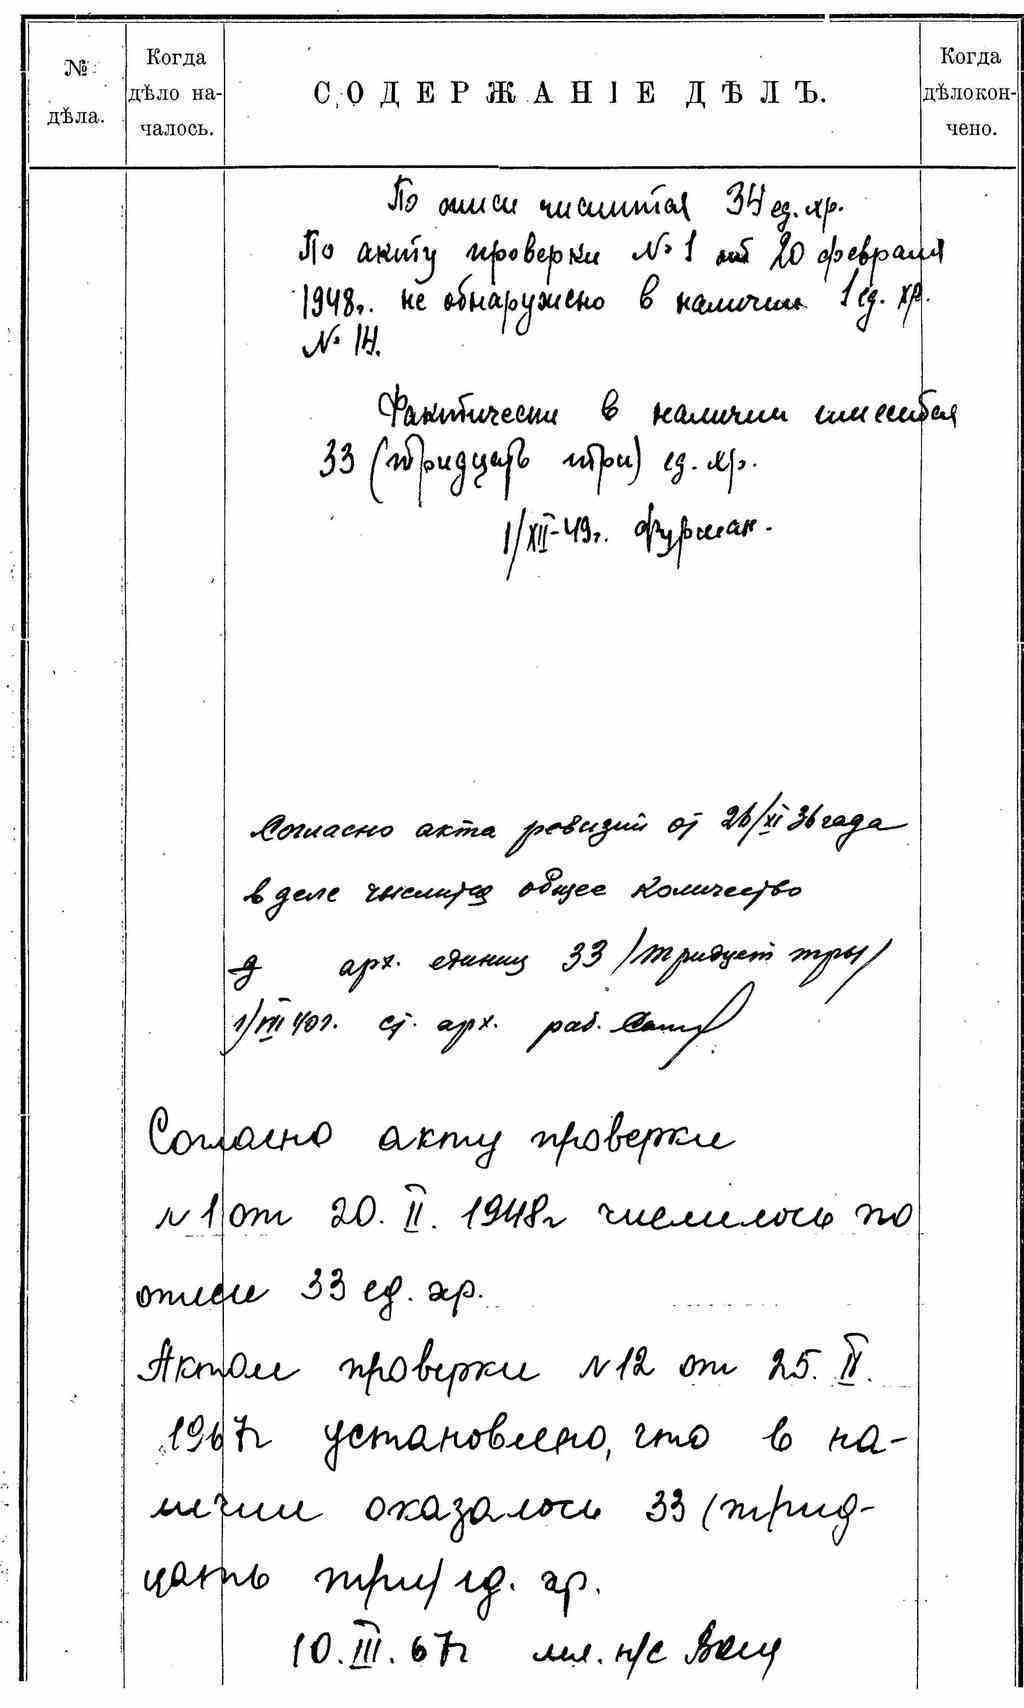 № дѣла.
Когда дѣло на-чалось.
СОДЕРЖАНІЕ ДѢЛЪ.
Когда дѣло кон-чено.
По описи числится 34 ед. хр.
По акту проверки № 1 от 20 февраля
1948г. не обнаружено в наличии 1 ед. хр.
№ 14.
Фактически в наличии имеется
33 (тридцать три) ед. хр.
1/XII-49г. Фурман.
Согласно акта ревизии от 26/XI 36 года
в деле числится общее количество
арх. единиц 33 /тридцет тры/
1/VII 40г. ст. арх. раб.
Согласно акту проверки
№ 1 от 20. II. 1948г числилось по
описи 33 ед. хр.
Актом проверки № 12 от 25. II.
1967г установлено, что в на-
личии оказалось 33 (трид-
цать три) ед. хр.
10. III. 67г мл. н/с